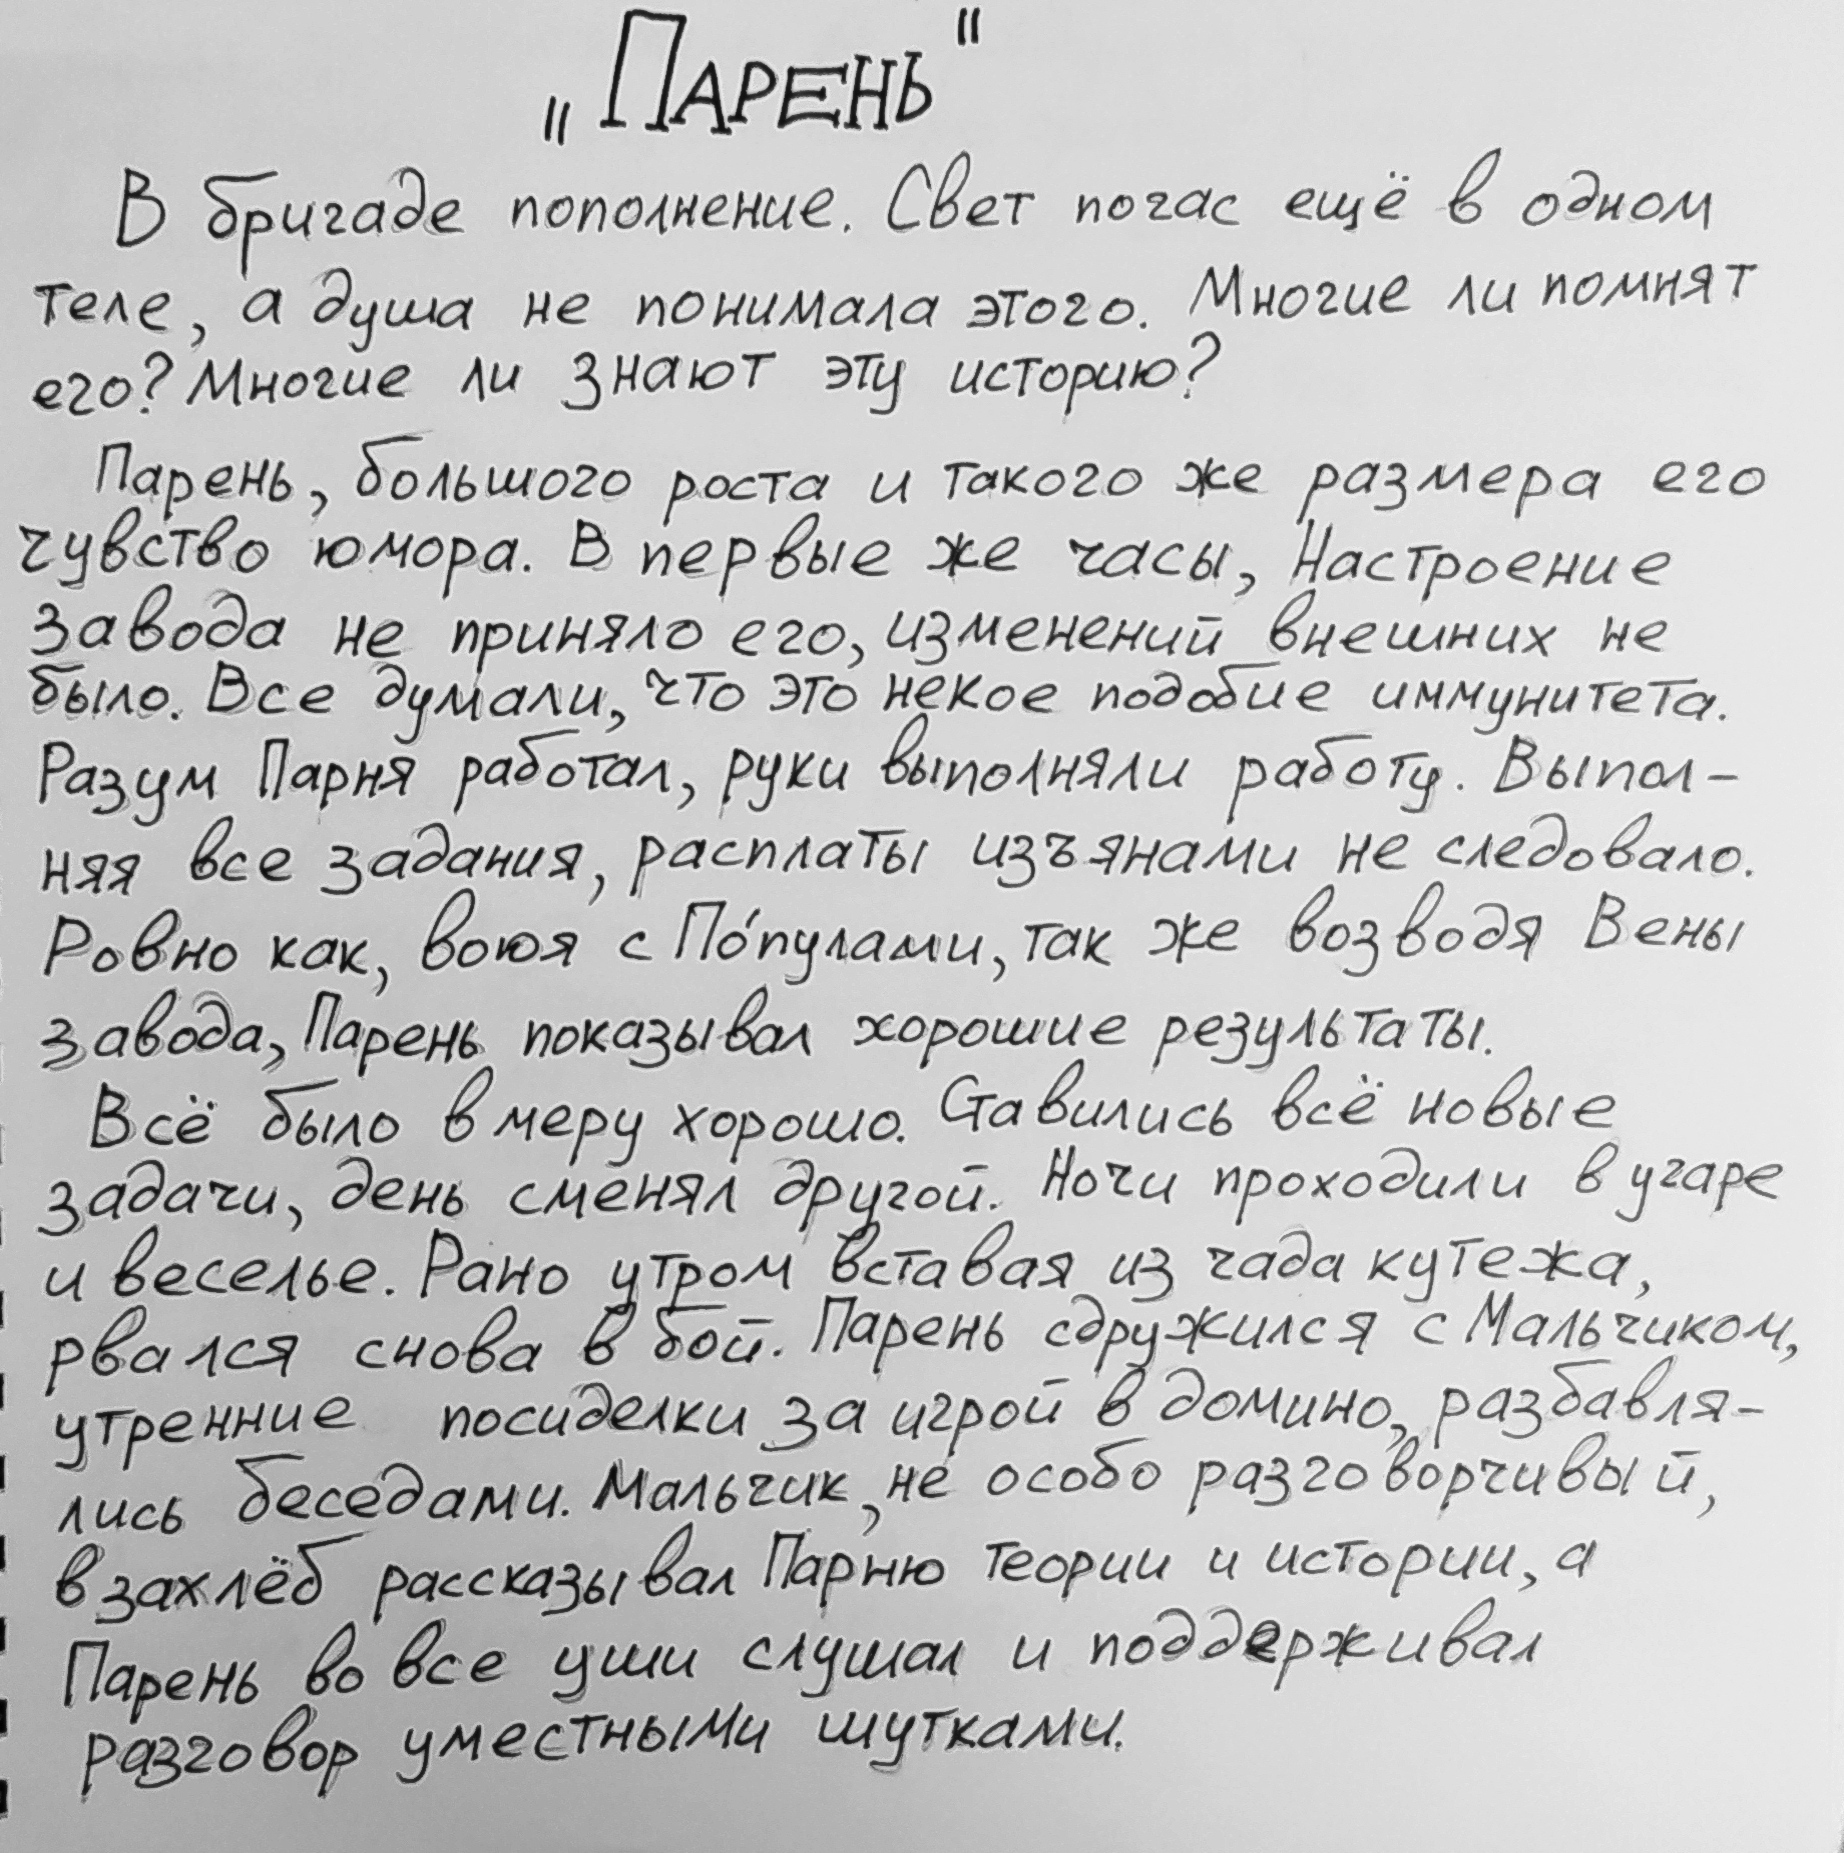 „Парень"
В бригаде пополнение. Свет погас ещё в одном
теле, а душа не понимала этого. Многие ли помнят
его? Многие ли знают эту историю?
Парень, большого роста и такого же размера его
чувство юмора. В первые же часы, Настроение
завода не приняло его, изменений внешних не
было. Все думали, что это некое подобие иммунитета.
Разум Парня работал, руки выполняли работу. Выпол-
няя все задания, расплаты изъянами не следовало.
Ровно как, воюя с По́пулами, так же возводя Вены
завода, Парень показывал хорошие результаты.
Всё было в меру хорошо. Ставились всё новые
задачи, день сменял другой. Ночи проходили в угаре
и веселье. Рано утром вставая из чада кутежа,
рвался снова в бой. Парень сдружился с Мальчиком,
утренние посиделки за игрой в домино, разбавля-
лись беседами. Мальчик, не особо разговорчивый,
взахлёб рассказывал Парню теории и истории, а
Парень во все уши слушал и поддерживал
разговор уместными шутками.